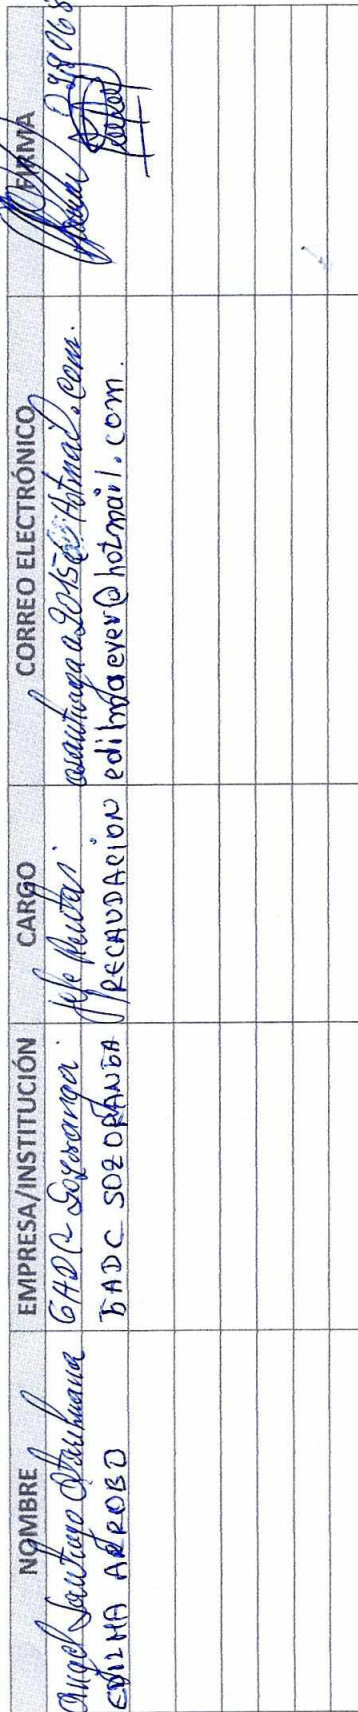 NOMBRE EMPRESA/INSTITUCIÓN CARGO CORREO ELECTRÓNICO FIRMA
Angel Santiago GADC Sozoranga Jefe Rentas asantiagoa2015@Hotmail.com.
EDILMA ARROBO GADC SOZORANGA RECAUDACION edilmaever@hotmail.com.